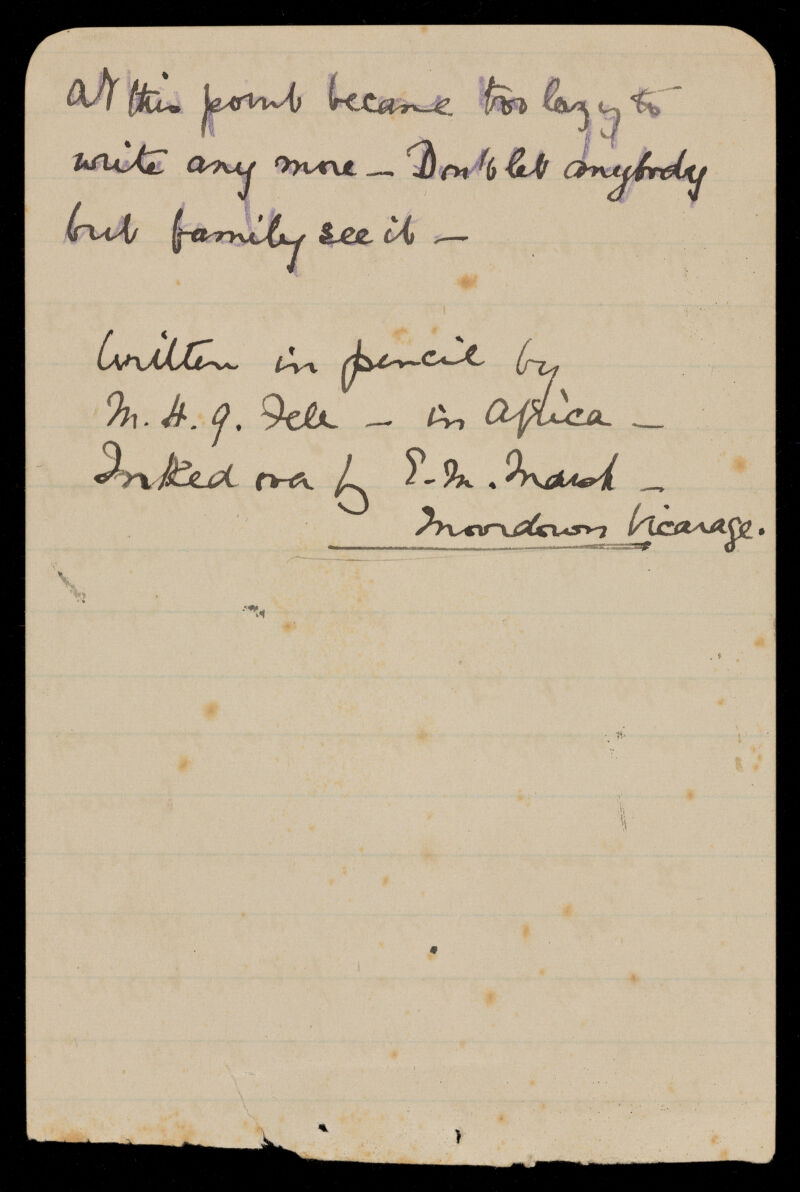 At this point became too lazy to
write any more – Don't let anybody
but family see it –
Written in pencil by
M. H. G. Fell – in Africa –
Inked over by E. M. Marsh –
Moordown Vicarage.